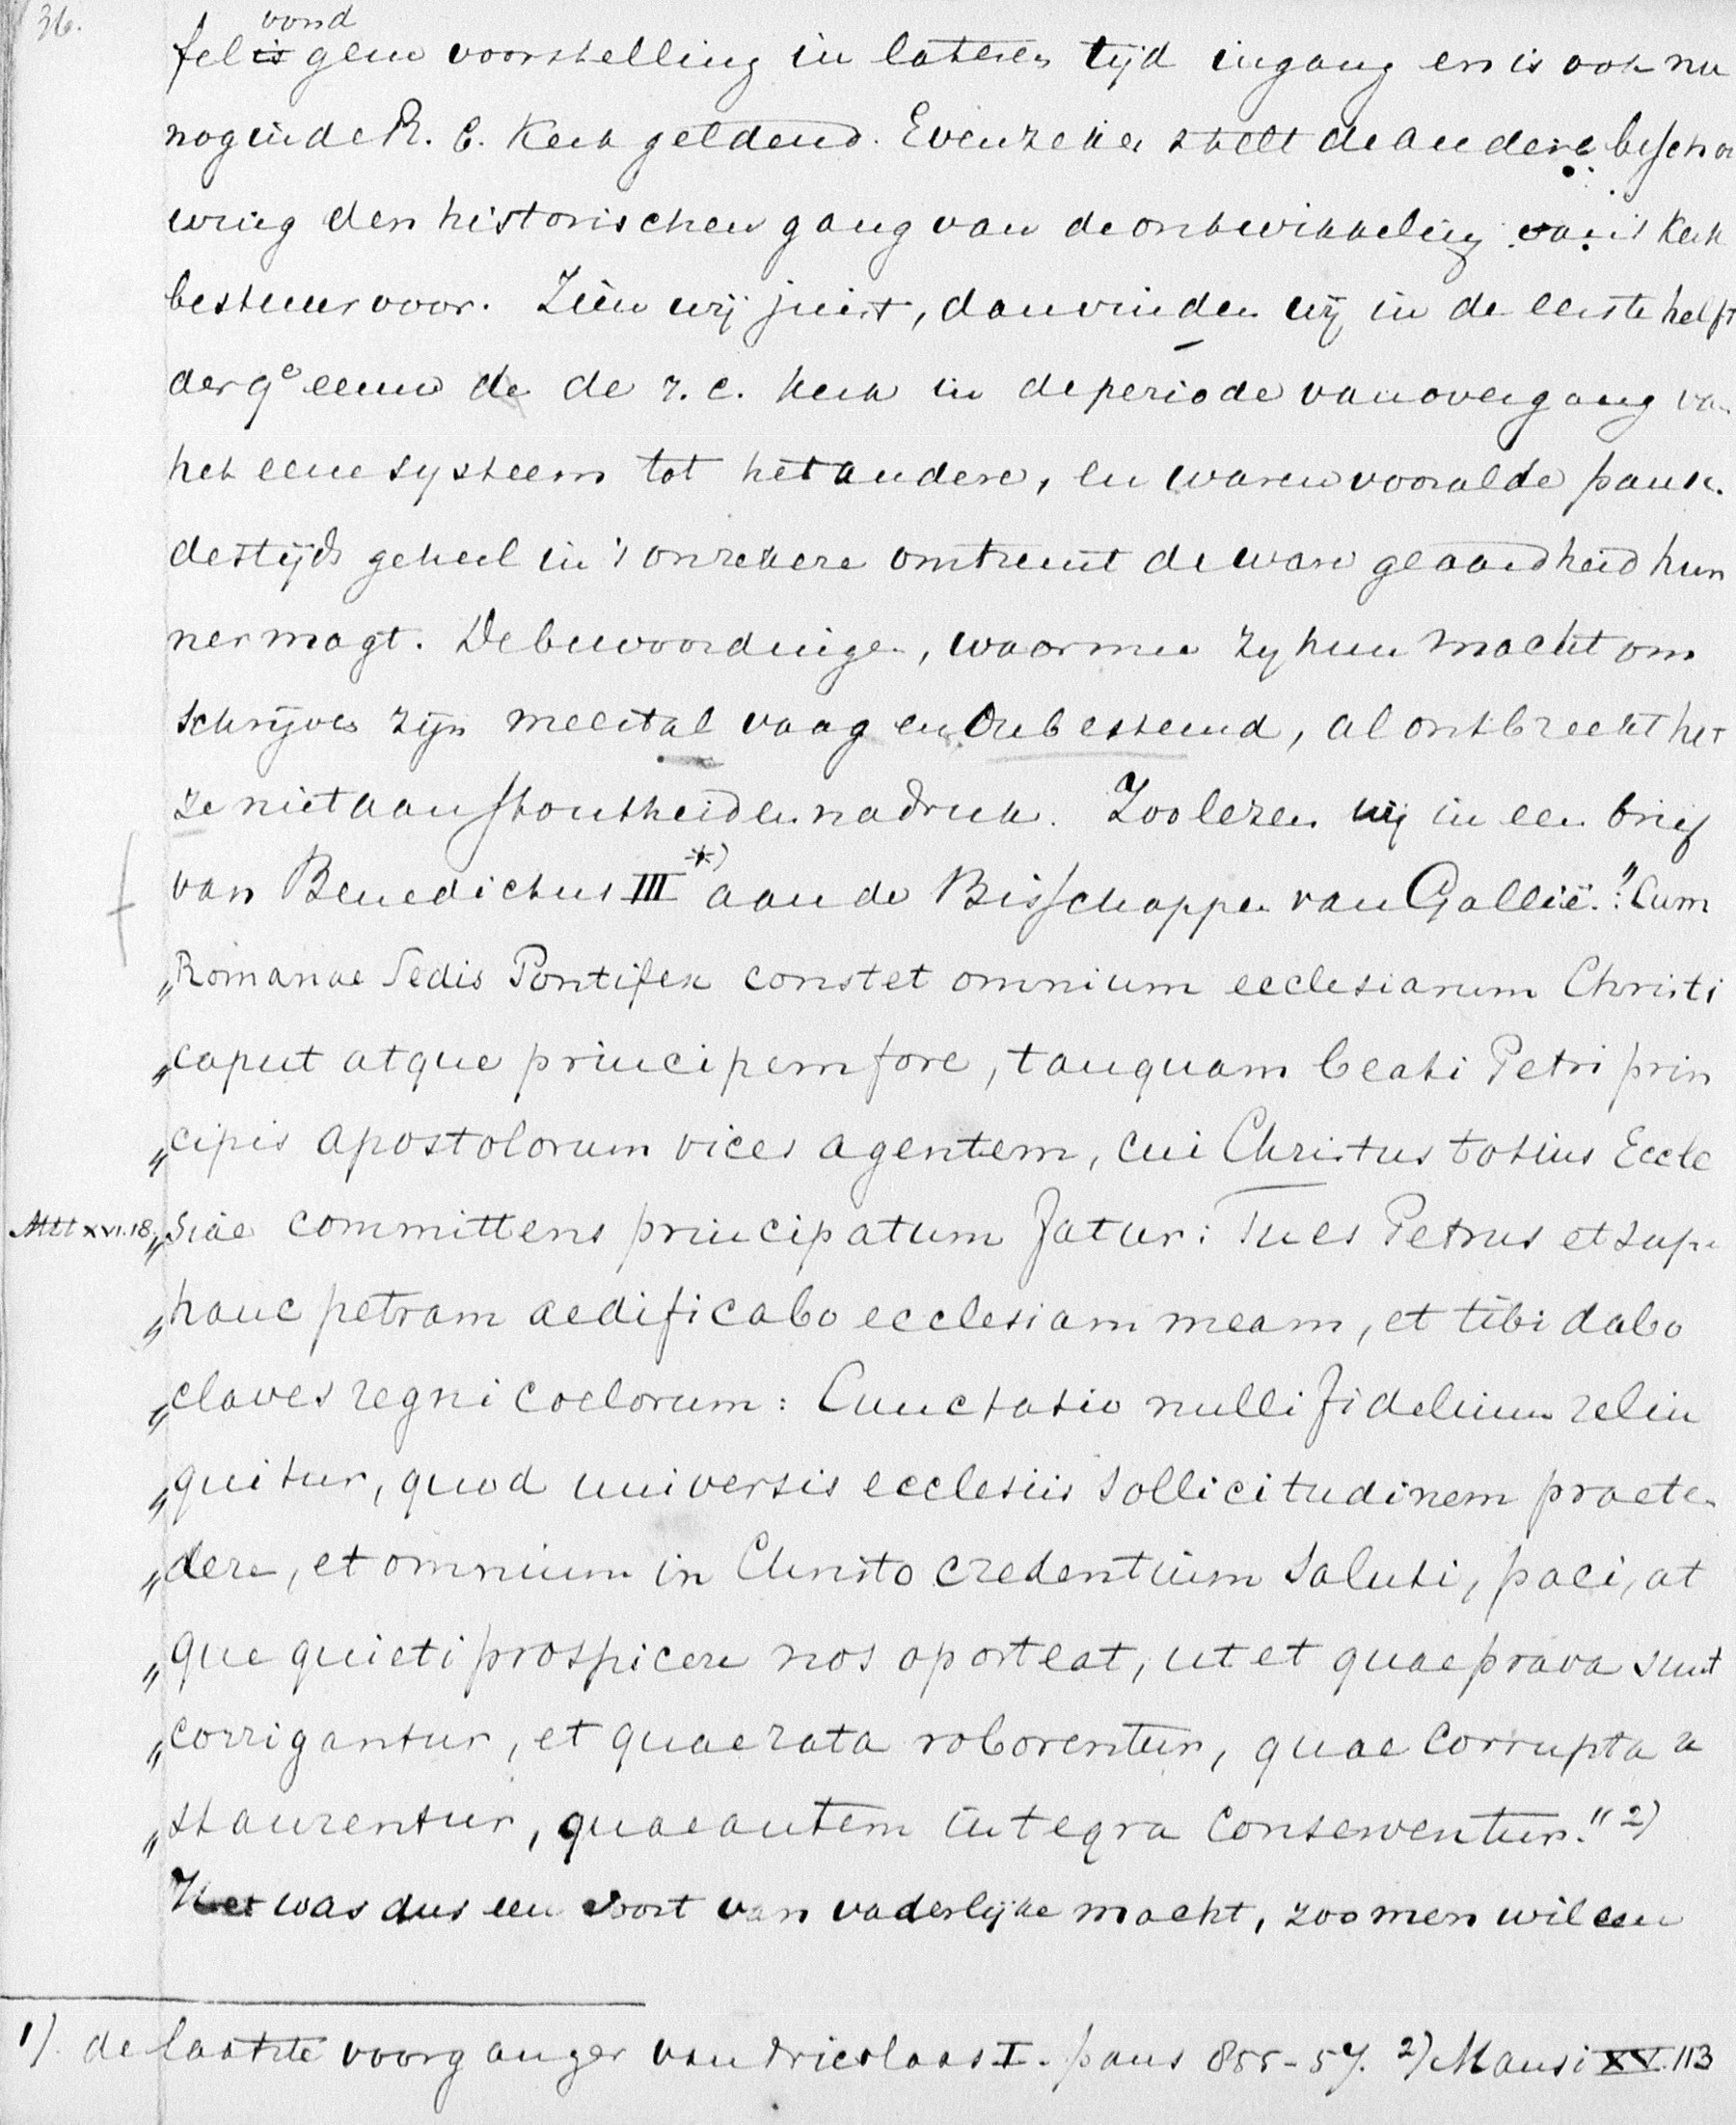 36.
vond
fel is geene voorstelling in lateren tijd ingang en is ook nu
nog in de R. C. Kerk geldend. Evenzeker stelt de andere beschou
wing den historischen gang van de ontwikkeling van 't Kerk
bestuur voor. Zien wij juist, dan vinden wij in de eerste helft
der 9e eeuw de de r. c. kerk in de periode van overgang van
het eene systeem tot het andere, en waren vooral de pausen
destijds geheel in 't onzekere omtrent de ware geaardheid hun
ner magt. De bewoordingen, waarmee zij hun macht om
schrijven zijn meestal vaag en onbestemd, al ontbreekt het
ze niet aan stoutheid en nadruk. Zoo lezen wij in een brief
van Benedictus III *) aan de Bisschoppen van Gallië: "Cum
„Romanae Sedis Pontifex constet omnium ecclesiarum Christi
„caput atque principem fore, tanquam beati Petri prin
„cipis apostolorum vices agentem, cui Christus totius Eccle
Mtt XVI.18 „siae committens principatum fatur: Tu es Petrus et super
„hanc petram aedificabo ecclesiam meam, et tibi dabo
„claves regni coelorum: Cunctatio nulli fidelium relin
„quitur, quod universis ecclesiis sollicitudinem praeten
„dere, et omnium in Christo credentium saluti, paci, at
„que quieti prospicere nos oporteat, ut et quae prava sunt
„corrigantur, et quae rata roborentur, quae corrupta re
„staurentur, quae autem integra conserventur." 2)
Het was dus een soort van vaderlijke macht, zoo men wil een
1). de laatste voorganger van Nicolaas I. paus 855-57. 2) Mansi XV. 113